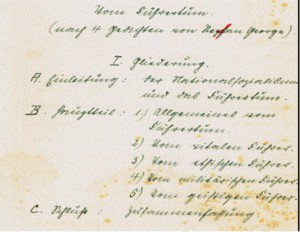 Vom Führertum.
(nach 4 Gedichten von Stefan George)
I. Gliederung.
A. Einleitung: Der Nationalsozialismus
und das Führertum.
B. Hauptteil: 1) Allgemeines vom
Führertum.
2) Vom vitalen Führer.
3) Vom ethischen Führer.
4) Vom militärischen Führer.
5) Vom geistigen Führer.
C. Schluß: Zusammenfassung